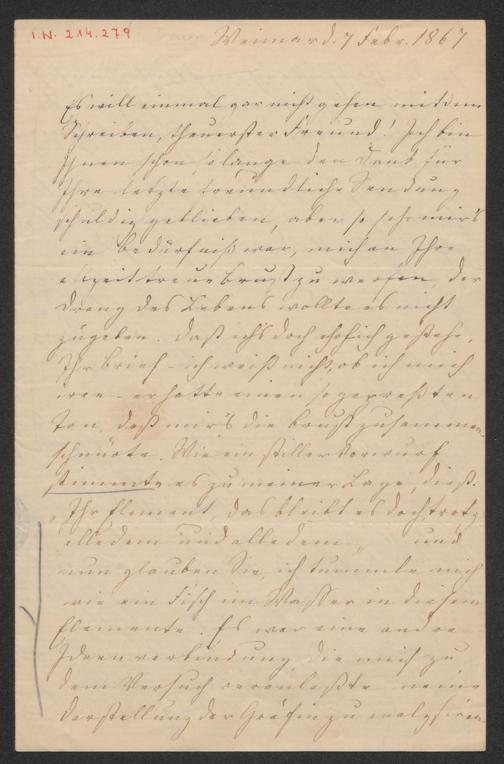 I.N. 214.279
Weimar d. 7 Febr. 1867
Es will einmal gar nicht gehen mit dem
Schreiben, theuerster Freund! Ich bin
Ihnen schon so lange den Dank für
Ihre letzte freundliche Sendung
schuldig geblieben, aber so sehr mir's
ein Bedürfniß war, mich an Ihre
allzeit treue Brust zu werfen, der
Drang des Lebens wollte es nicht
zugeben. Daß ich's doch ehrlich gestehe,
Ihr Brief – ich weiß nicht, ob ich mich
irre – er hatte einen so gepreßten
Ton, daß mir's die Brust zusammen
schnürte. Wie ein stiller Vorwurf
stimmte es zu meiner Lage, dieß:
"Ihr Element, das bleibt es doch trotz
alledem und alledem", und
nun glauben Sie, ich tummle mich
wie ein Fisch im Wasser in diesem
Elemente. Es war eine andre
Ideenverbindung die mich zu
dem Versuch veranlaßte meine
Darstellung der Gräfin zu analysiren